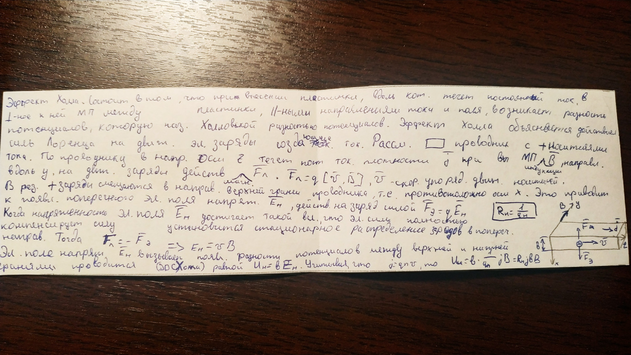 Эффект Холла состоит в том, что при внесении пластинки, вдоль кот. течет постоянный ток, в
⊥-ное к ней МП между пластинки, ||-ными направлениям тока и поля, возникает разность
потенциалов, которую наз. Холловской разностью потенциалов. Эффект Холла объясняется действием
силы Лоренца на движ. эл. заряды ток. Рассм. ▭ проводник с + носителями
тока. По проводнику в напр. оси z течет пот ток плотности j при МП B направл.
вдоль y, на движ. заряды действ F̅л. F̅л = q[v̅, B̅], v̅ - скор. упоряд. движ носителей.
В рез. + заряды смещаются в направ. верхней грани проводника, т.е противоположно оси x. Это приводит
к появл. поперечного эл. поля напряж. E̅н, действ на заряд силой F̅э = q E̅н
Когда напряженность эл. поля E̅н достигает такой вел. что эл силы полностью
компенсирует силу установится стационарное распределение зарядов в попереч.
направ. Тогда F̅л = - F̅э => Eн = vB
Rн = 1/qn
Эл. поле напряж. E̅н вызывает появл. разности потенциалов между верхней и нижней
гранями проводника равной Uн = b Eн. Учитывая что j = qnv, то Uн = b · 1/qn jB = Rн jbB